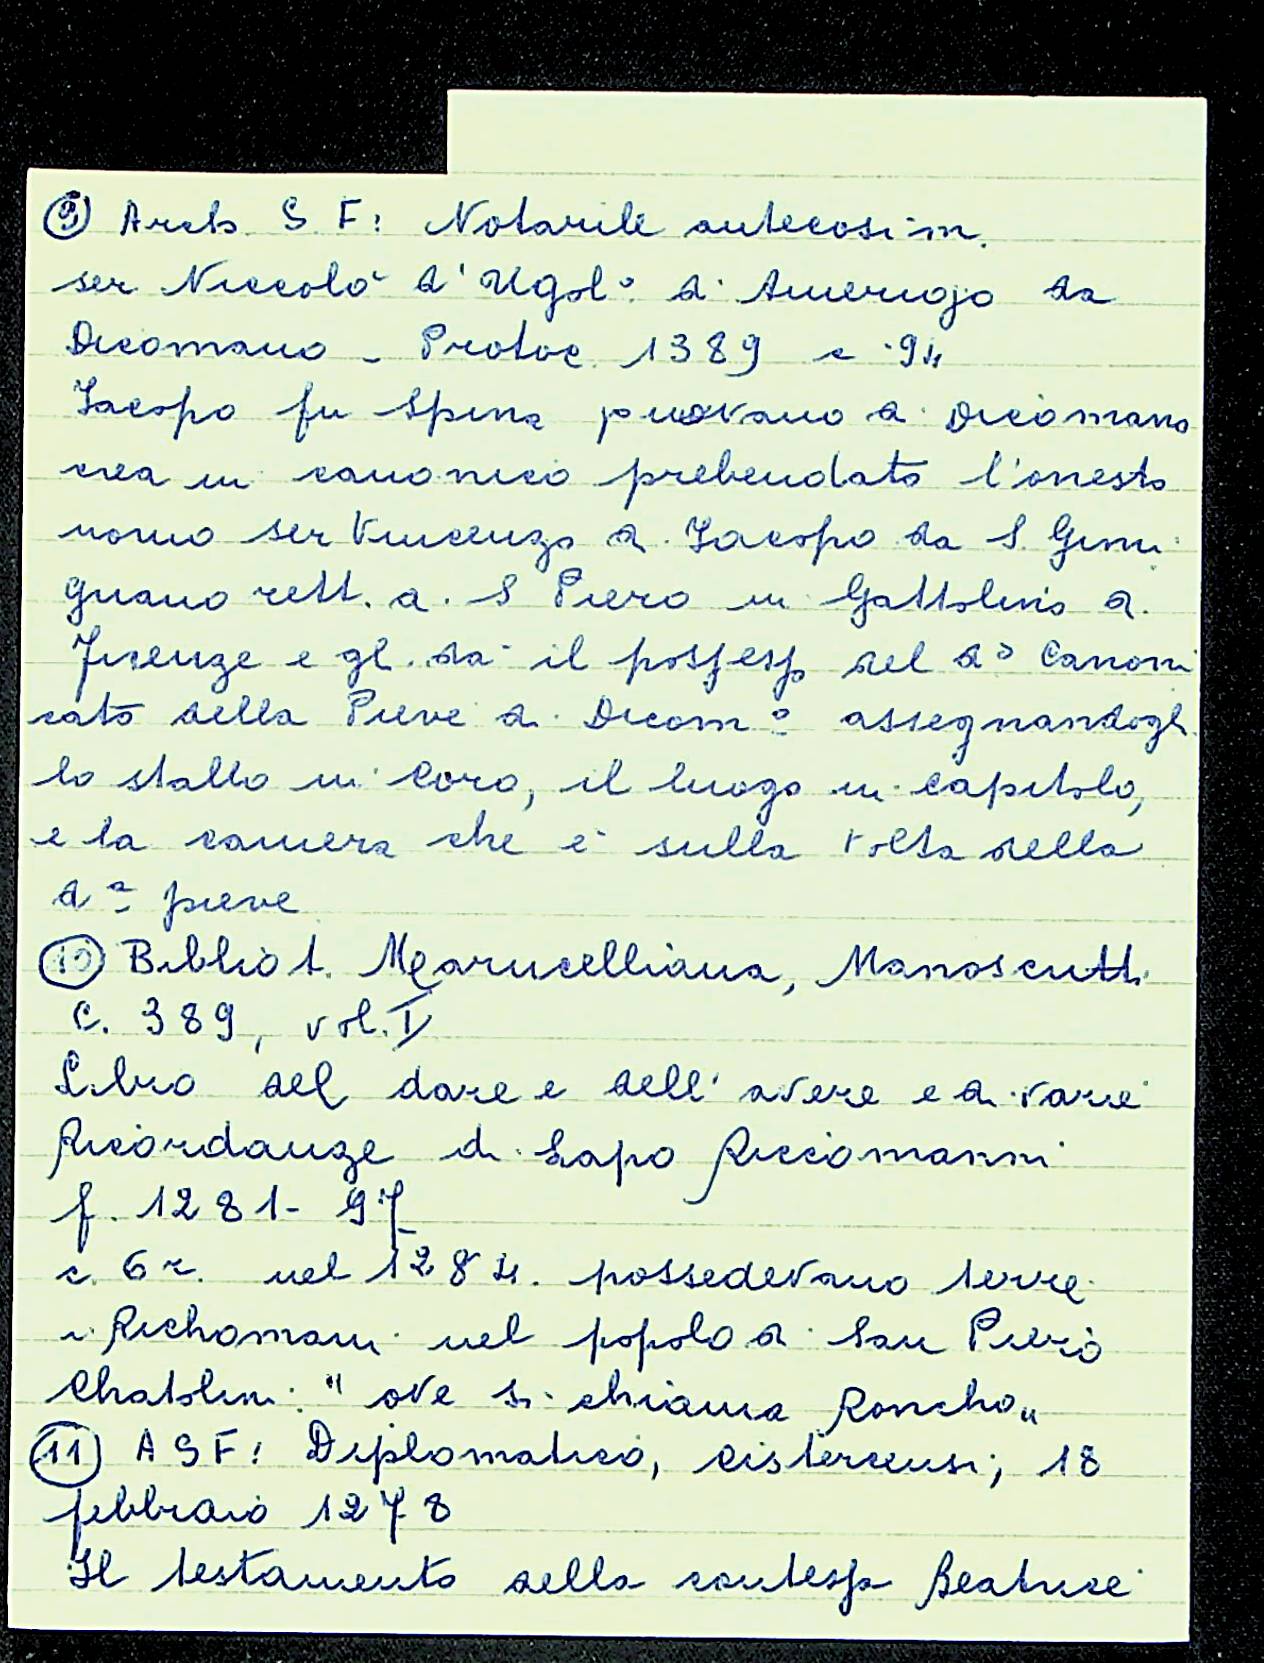 9) Arch. S F: Notarile antecosim.
ser Niccolò d'Ugol° di Amerigo da
Dicomano - Protoc. 1389 c. 94
Jacopo fu Spina piovano di Dicomano
crea in canonico prebendato l'onesto
uomo ser Vincenzo di Jacopo da S. Gimi
gnano rett. di S Piero in Gattolino di
Firenze e gli dà il possesso del d° Canoni
cato della Pieve di Dicom° assegnandogli
lo stallo in Coro, il luogo in capitolo,
e la camera che è sulla volta della
dª pieve
10) Bibliot. Marucelliana, Manoscritti
C. 389, vol. I
Libro del dare e dell'avere e di varie
Ricordanze di Lapo Riccomanni
f. 1281-97
c. 6 r. nel 1284. possedevano terre
i Richomani nel popolo di San Piero
Chatolini "ove si chiama Roncho"
11) A S F: Diplomatico, Cistercensi; 18
febbraio 1278
Il testamento della contessa Beatrice